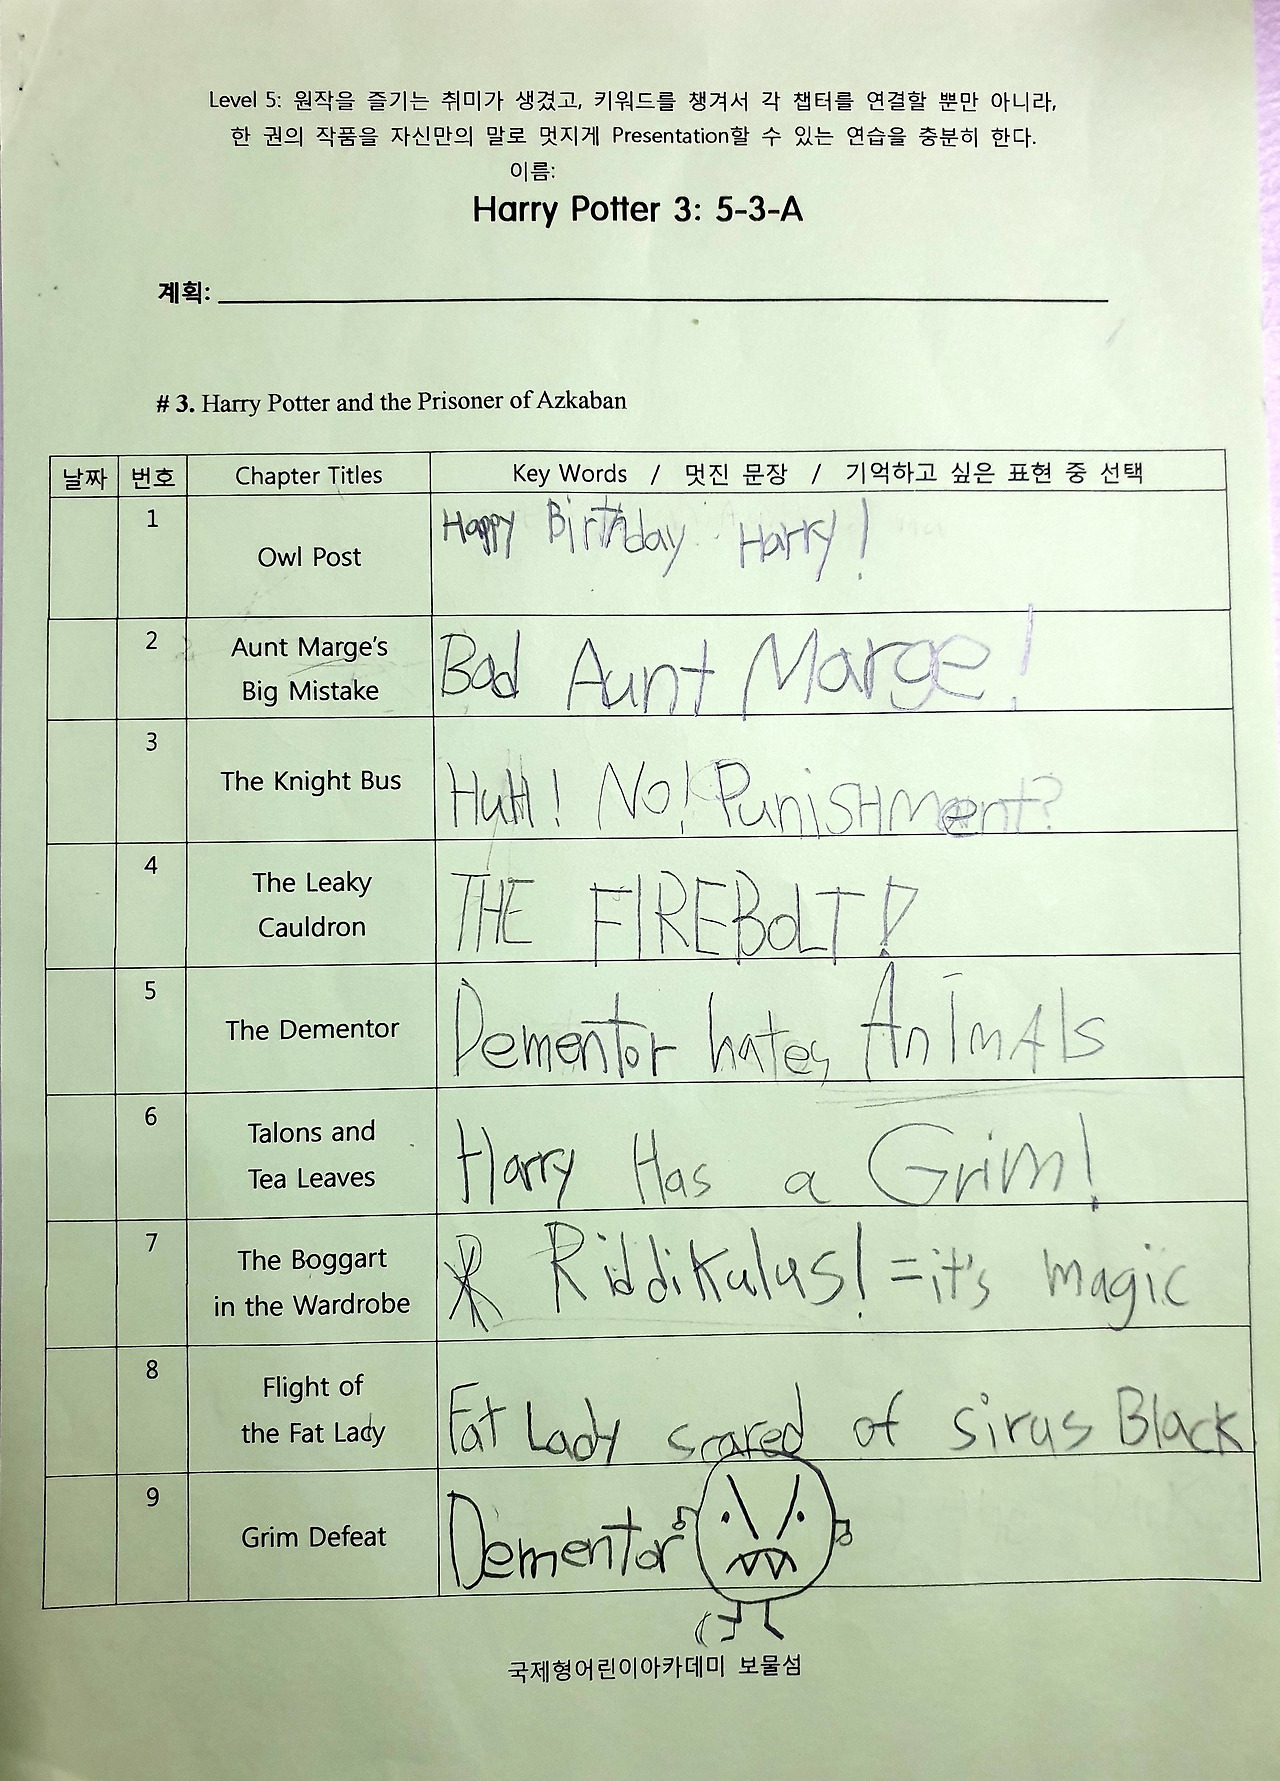 Level 5: 원작을 즐기는 취미가 생겼고, 키워드를 챙겨서 각 챕터를 연결할 뿐만 아니라,
한 권의 작품을 자신만의 말로 멋지게 Presentation할 수 있는 연습을 충분히 한다.
이름:
Harry Potter 3: 5-3-A
계획:
# 3. Harry Potter and the Prisoner of Azkaban
날짜 번호 Chapter Titles Key Words / 멋진 문장 / 기억하고 싶은 표현 중 선택
1
Owl Post
Happy Birthday Harry!
2
Aunt Marge's
Big Mistake
Bad Aunt Marge!
3
The Knight Bus
HuH! No! PuniSHment?
4
The Leaky
Cauldron
THE FIREBoLT!
5
The Dementor
Dementor hates AnImAls
6
Talons and
Tea Leaves
Harry Has a Grim!
7
The Boggart
in the Wardrobe
Riddikulus! = it's magic
8
Flight of
the Fat Lady
Fat Lady scared of sirus Black
9
Grim Defeat
Dementor
국제형어린이아카데미 보물섬